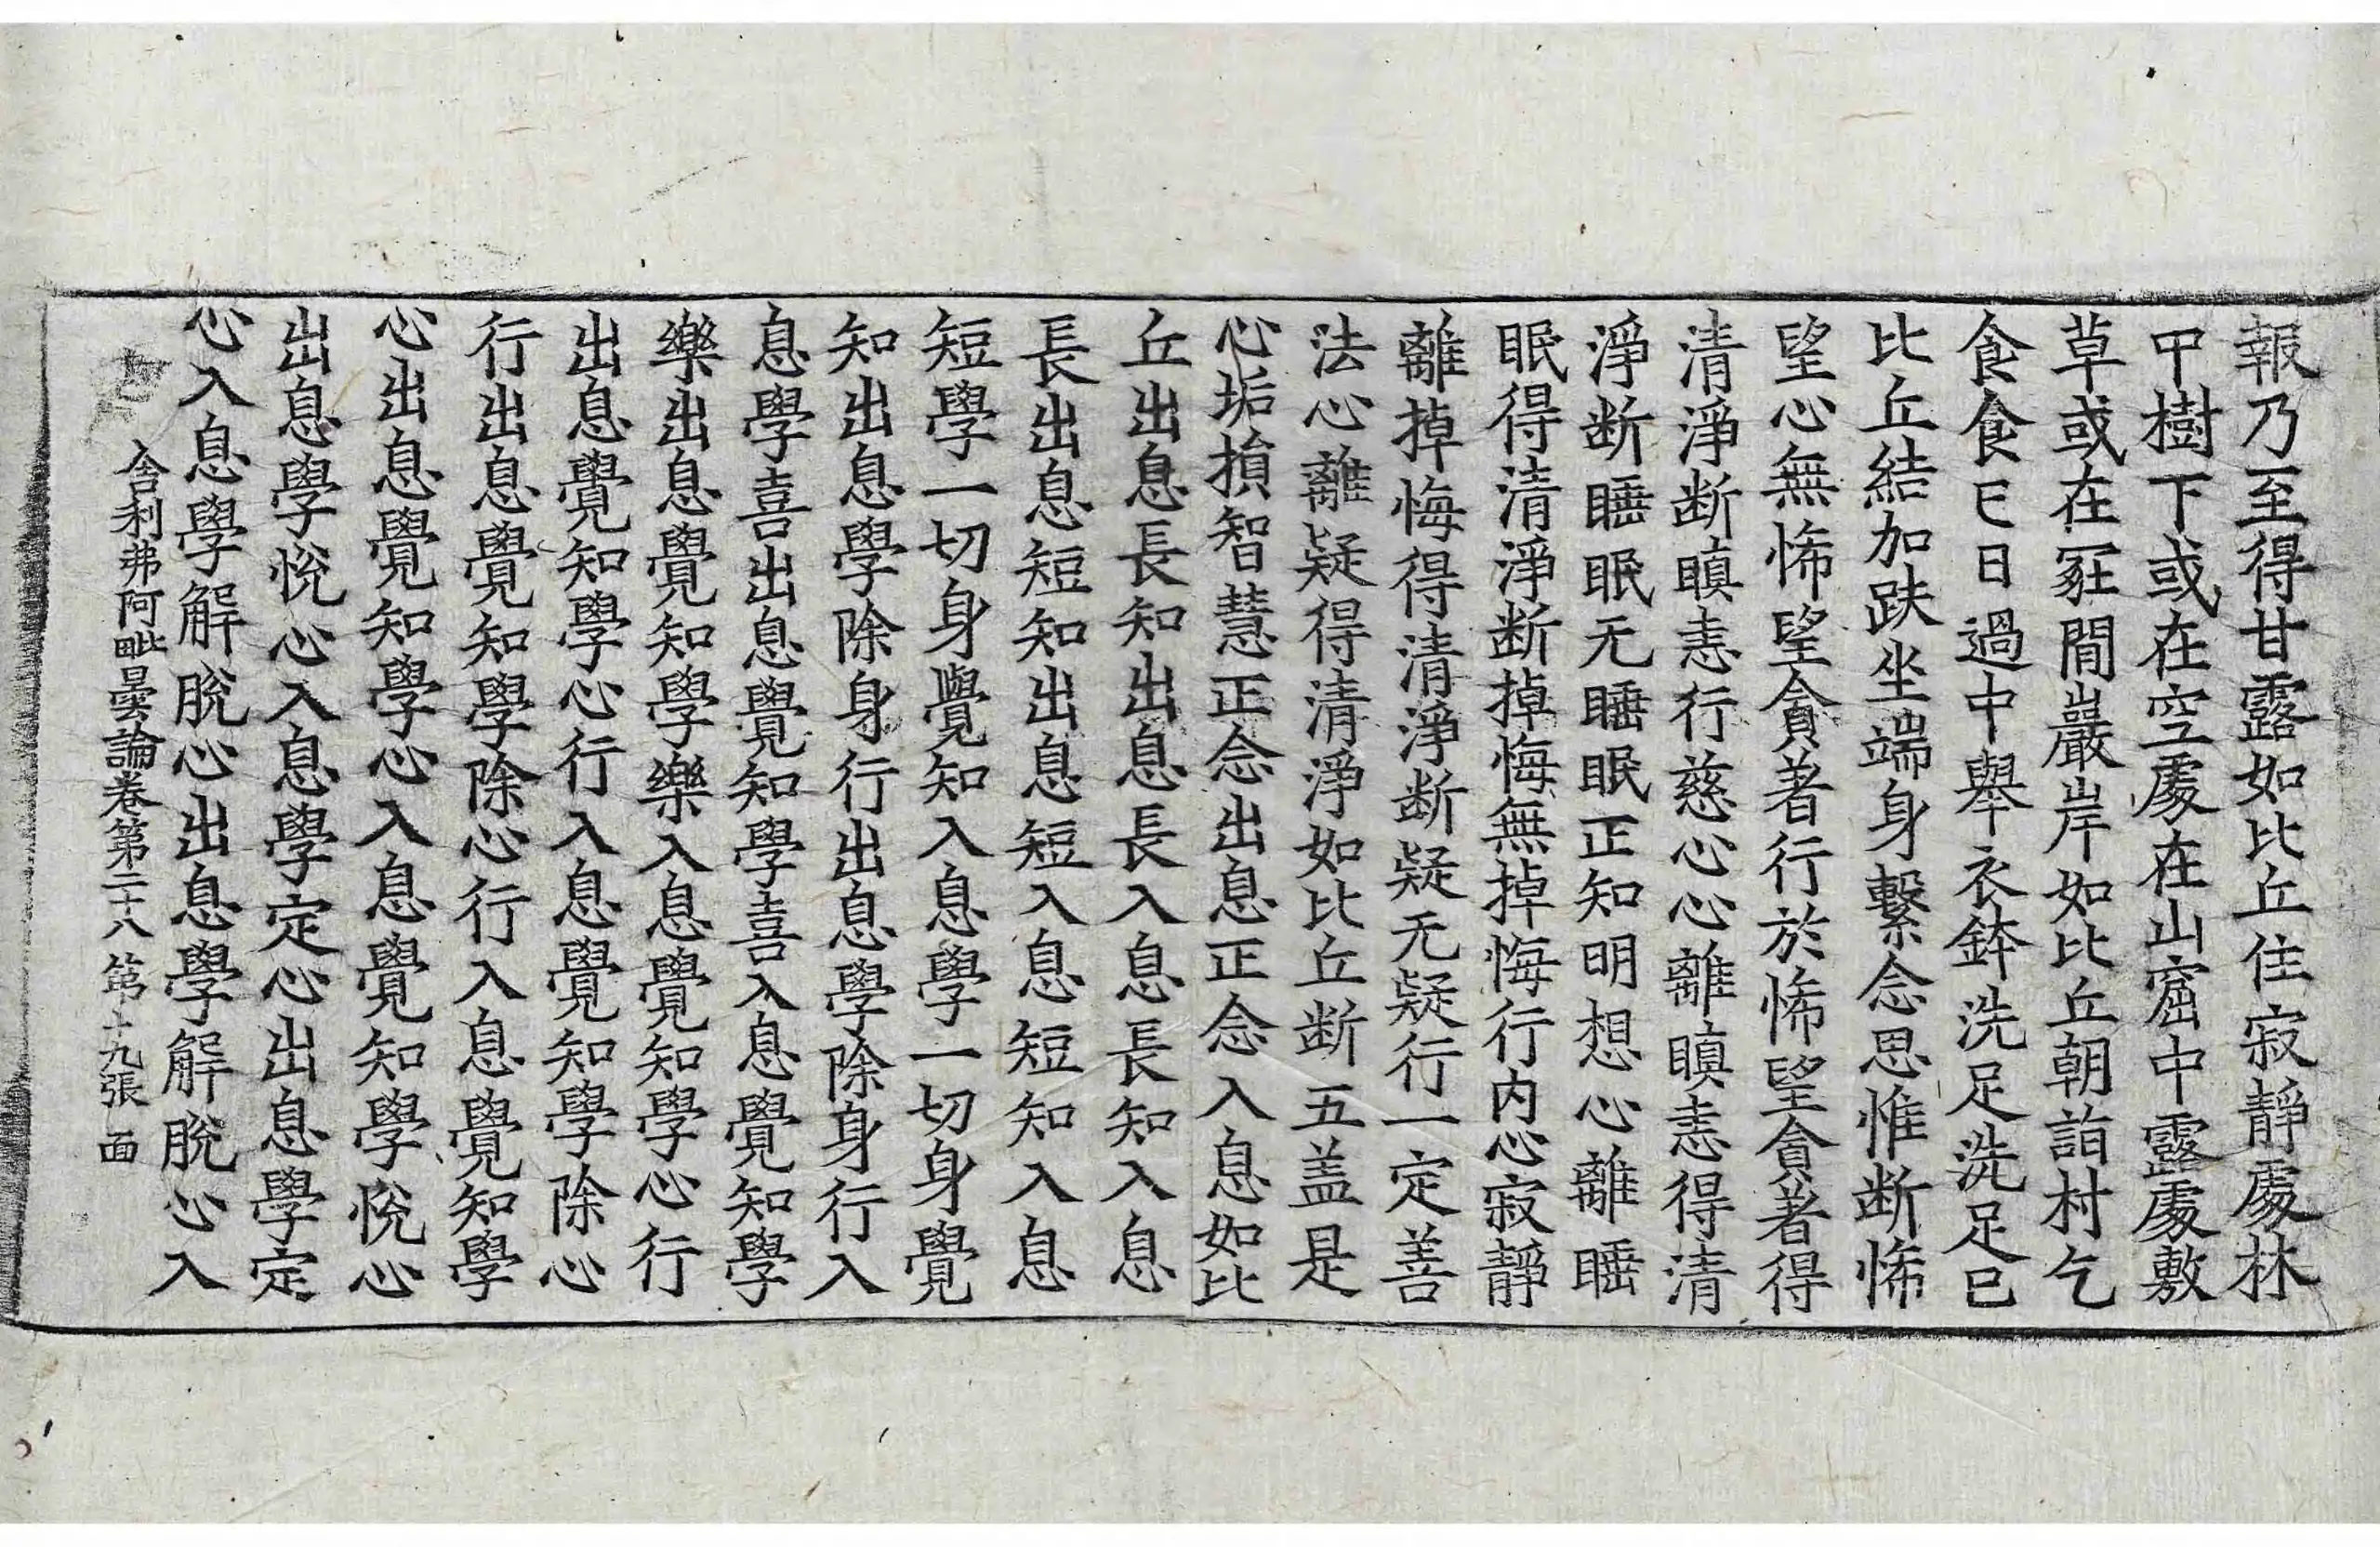 報乃至得甘露如比丘住寂靜處林
中樹下或在空處在山窟中露處敷
草或在冢間巖岸如比丘朝詣村乞
食食已日過中舉衣鉢洗足洗足已
比丘結加趺坐端身繫念思惟断悕
望心無悕望貪著行於悕望貪著得
清淨断瞋恚行慈心心離瞋恚得清
淨断睡眠无睡眠正知明想心離睡
眠得清淨断掉悔無掉悔行内心寂靜
離掉悔得清淨断疑无疑行一定善
法心離疑得清淨如比丘断五盖是
心垢損智慧正念出息正念入息如比
丘出息長知出息長入息長知入息
長出息短知出息短入息短知入息
短學一切身覺知入息學一切身覺
知出息學除身行出息學除身行入
息學喜出息覺知學喜入息覺知學
樂出息覺知學樂入息覺知學心行
出息覺知學心行入息覺知學除心
行出息覺知學除心行入息覺知學
心出息覺知學心入息覺知學悅心
出息學悅心入息學定心出息學定
心入息學解脫心出息學解脫心入
舍利弗阿毗曇論卷第二十八 第十九張 面